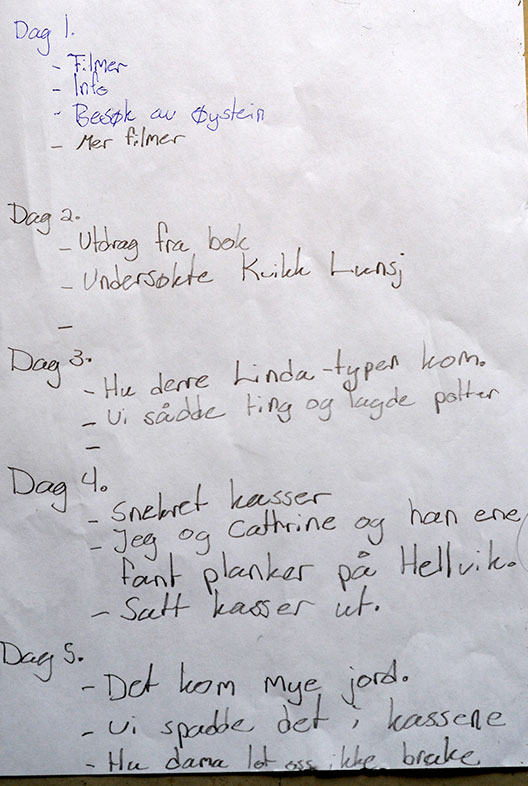 Dag 1.
- Filmer
- Info
- Besøk av Øystein
- Mer filmer
Dag 2.
- Utdrag fra bok
- Undersøkte Kvikk Lunsj
-
Dag 3.
- Hu derre Linda-typen kom.
- Vi sådde ting og lagde potter
-
Dag 4.
- Snekret kasser
- Jeg og Cathrine og han ene
fant planker på Hellvik.
- Satt kasser ut.
Dag 5.
- Det kom mye jord.
- Vi spadde det i kassene
- Hu dama lot oss ikke bruke